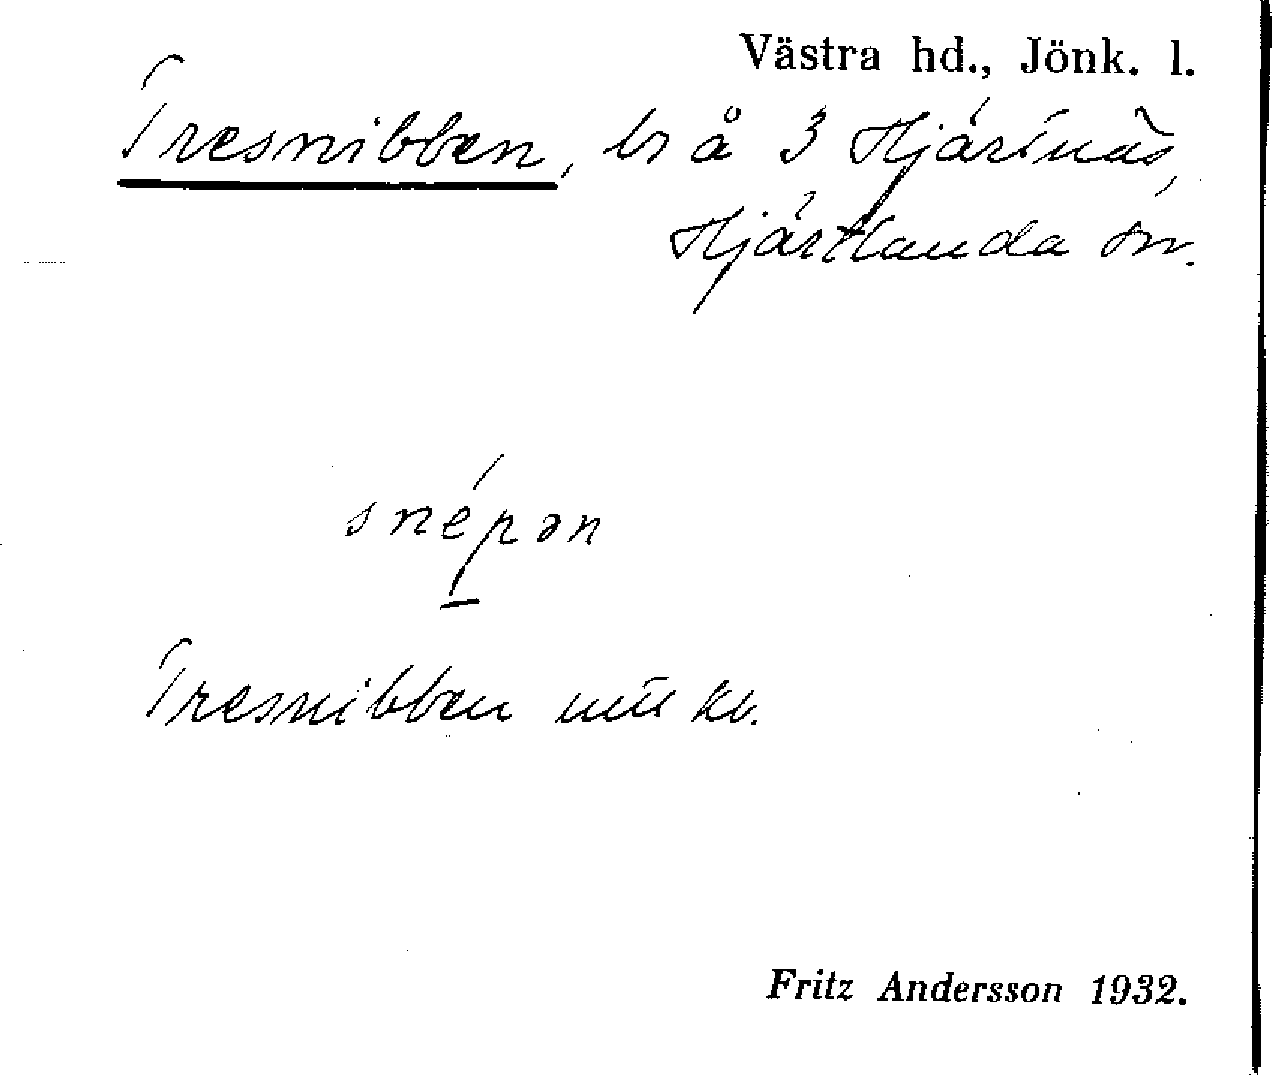 Västra hd., Jönk. l.
Tresnibben, ls å 3 Hjärtnäs,
Hjärtlanda sn.
snépən
Tresnibben kb.
Fritz Andersson 1932.